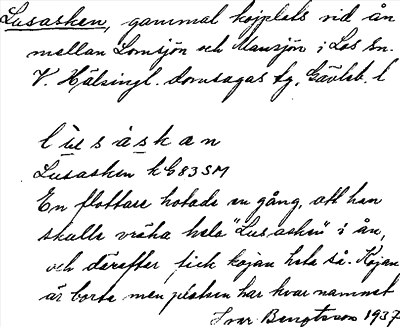 Lusasken, gammal kojplats vid ån
mellan Lomsjön och Mansjön i Los sn.
V. Hälsingl. domsagas tg, Gävleb. l
lùsàskan
Lusasken k G83SM
En flottare hotade en gång, att han
skulle vräka hela "Lusasken" i ån,
och därefter fick kojan heta så. Kojan
är borta men platsen har kvar namnet
Ivar Bengtsson 1937